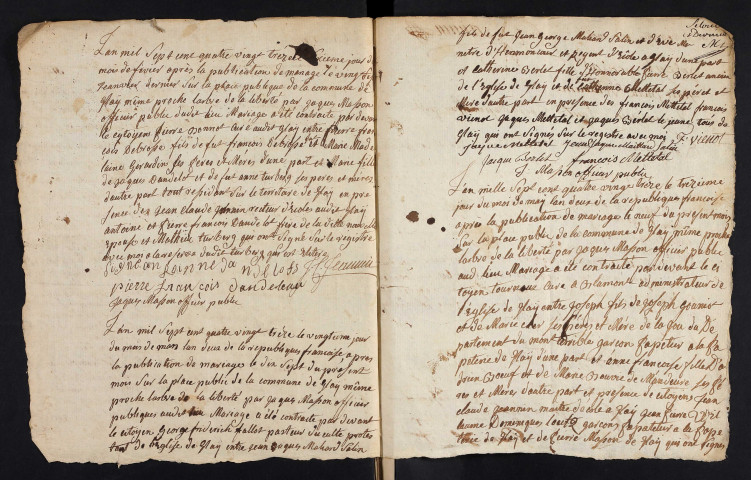 Lan mil Sept cent quatre vingt treize le jour du
mois de fevrier après la publication de mariage le vingtième
Janvier dernier sur la place publique de la commune de
Glay même proche larbre de la liberté par Jaques Masson
officier public dudit lieu Mariage a été contracté par devant
le cytoyen Pierre Bonnot Curé audit Glay entre Pierre fran
cois fils de fut francois et Marie Made
laine Gerardin ses Pere et Meres d'une part et Marie fille
de Jaques Dandelot et de fut anne turberg ses peres et meres
d'autre part tout residant sur le territoire de Glay en pre
sence des Jean Claude recteur d'école audit Glay
antoine et Pierre francois Dandelot frere de la dite nouvelle
epouse et Mathieu turberg qui ont signé sur le registre
avec moi a la reserve dudit turberg qui est illitere
Jeannin
pierre francois dandelau
Jaques Masson officier public
Lan mil Sept cent quatre vingt treize le vingtieme jour
du mois de mars lan deux de la republique francaise apres
la publication de mariages le dix Sept du present
mois sur la place public de la commune de Glay même
proche larbre de la liberté par Jaques Masson officier
publique audit lieu Mariage a été contracté par devant
le citoyen George frederich fallot pasteur du culte protes
tant de l'eglise de Glay entre Jean Jaques Maliard Salin
fils de fut Jean george Maliard Salin et d'Eve Ma
d'Hermoncourt et regent d'école a Glay d'une part
et Catherine Berlot fille d'Honnorable Pierre Berlot ancien
de l'eglise de Glay et de Catherine Mettetal ses pére et
Mére d'autre part en presence des francois Mettetal francois
vienot Jaques Mettetal et Jaques Berlot le jeune tous de
Glay qui ont signés sur le registre avec moi F. vienot
Jacque Mettetal
Jacque Berlot francois Mettetal
J. Masson officier public
Lan mille Sept cent quatre vingt treize le treizieme
jour du mois de may lan deux de la republique francaise
après la publication de mariage le neuf du present mois
sur la place public de la commune de Glay même proche
larbre de la liberté par Jaques Masson officier public
aud. lieu Mariage a été contracté par devant le ci
toyen tournoux Curé a Blamont administrateur de
l'eglise de Glay entre Joseph fils de Joseph
et de Marie ses Pére et Mére de la Dé
partement du mont terrible garcon papetier a la pa
peterie de Glay d'une part et anne francoise fille d'A
drien Boeuf et de Marie de Mandeure ses Pé
res et Meres d'autre part et presence de citoyens Jean
Claude Jeannin maitre d'école a Glay Jean Pierre
laume Dominiques garcons papetiers a la pape
terie de Glay et de Pierre Masson de Glay qui ont signés